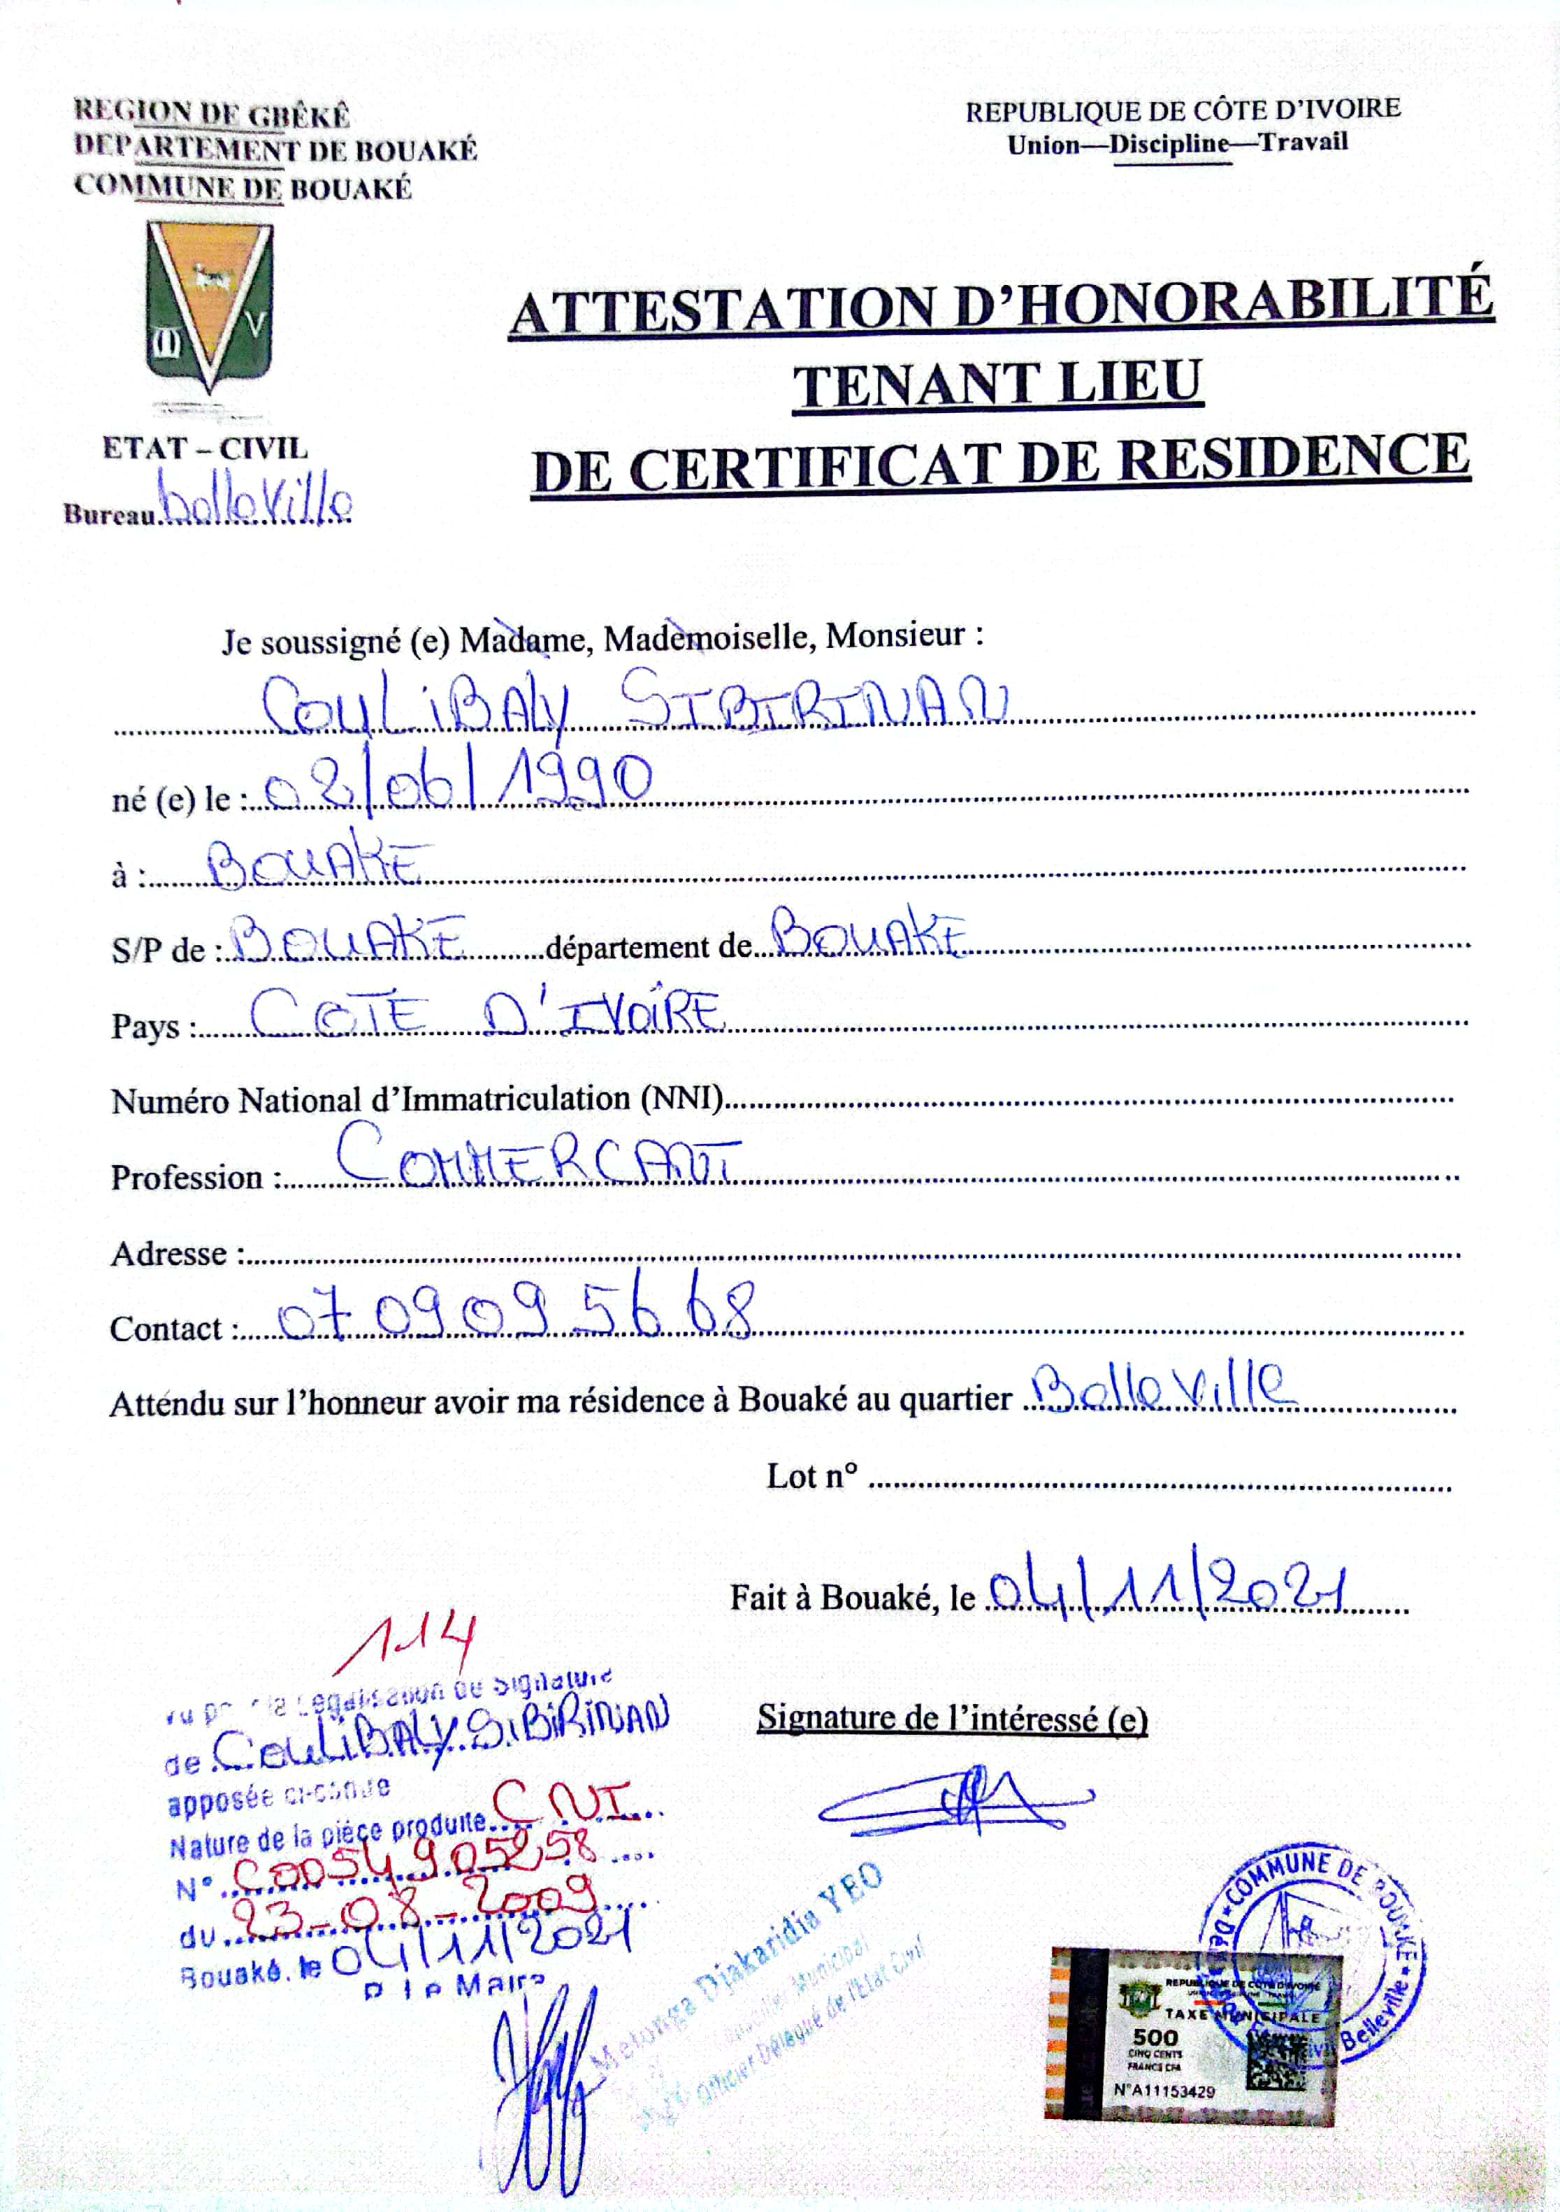 REGION DE GBÊKÊ
DEPARTEMENT DE BOUAKÉ
COMMUNE DE BOUAKÉ
REPUBLIQUE DE CÔTE D'IVOIRE
Union—Discipline—Travail
V
ETAT – CIVIL
Bureau belleville
ATTESTATION D'HONORABILITÉ
TENANT LIEU
DE CERTIFICAT DE RESIDENCE
Je soussigné (e) Madame, Mademoiselle, Monsieur :
COULIBALY SIBIRINAN
né (e) le : 02/06/1990
à : BOUAKE
S/P de : BOUAKE département de BOUAKE
Pays : COTE D'IVOIRE
Numéro National d'Immatriculation (NNI)
Profession : COMMERCANT
Adresse :
Contact : 07 09 09 56 68
Attendu sur l'honneur avoir ma résidence à Bouaké au quartier Belleville
Lot n°
Fait à Bouaké, le 04/11/2021
114
la Légalisation de Signature
de COULIBALY SIBIRINAN
apposée ci-contre
Nature de la pièce produite CNI
N° C0054905258
du 23-08-2009
Bouaké, le 04/11/2021
P. Le Maire
Signature de l'intéressé (e)
Metonga Djakaridia YEO
Conseiller Municipal
Officier Délégué de l'Etat Civil
COMMUNE DE BOUAKE
Belleville
REPUBLIQUE DE COTE D'IVOIRE
TAXE MUNICIPALE
500
CINQ CENTS
FRANCS CFA
N°A11153429